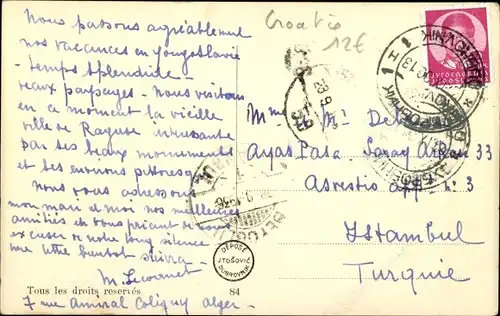 Nous passons agréablement
nos vacances en Yougoslavie
temps splendide -
beaux paysages - Nous visitons
en ce moment la vieille
ville de Raguse
par ses beaux monuments
et ses environs pittoresques
nous vous adressons
mon mari et moi nos meilleures
amitiés en vous priant de nous
excuser de notre long silence
une lettre bientôt suivra -
M. Lecournet
7 rue Amiral Coligny Alger -
Tous les droits reservés
84
Croatie
12€
Mme M.
Ayas Pasa Saray 33
app no: 3
Istanbul
Turquie
DÉPOSÉ
J TOŠOVIĆ
DUBROVNIK
DUBROVNIK
BEYOGLU
1936